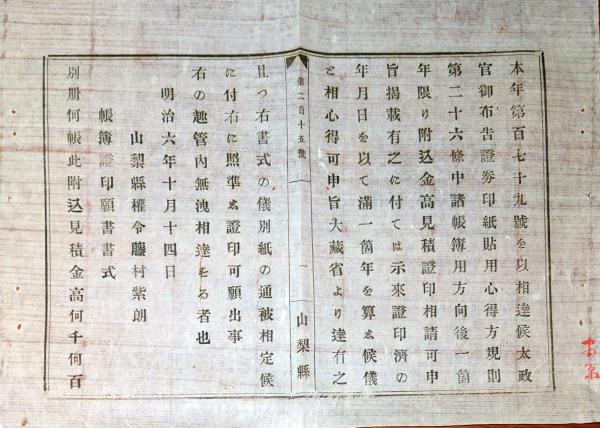 本年第百七十九號を以相達候太政
官御布告證券印紙貼用心得方規則
第二十六條中諸帳簿用方向後一箇
年限り附込金高見積證印相請可申
旨揭載有之に付ては示來證印濟の
年月日を以て滿一箇年を算ゑ候儀
と相心得可申旨大藏省より達有之
第二百十五號
一
山梨縣
且つ右書式の儀別紙の通被相定候
に付右に照準ゑ證印可願出事
右の趣管內無洩相達をる者也
明治六年十月十四日
山梨縣權令藤村紫朗
帳簿證印願書書式
別册何帳此附込見積金高何千何百